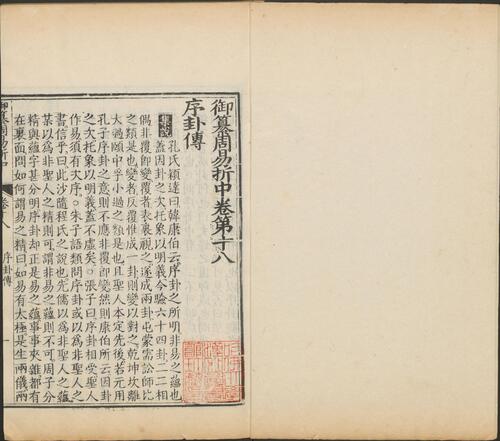 御纂周易折中卷第十八
序卦傳
集說
孔氏穎達曰韓康伯云序卦之所明非易之蘊也
蓋因卦之次托象以明義今驗六十四卦二二相
偶非覆即變覆者表裏視之遂成兩卦屯蒙需訟師比
之類是也變者反覆惟成一卦則變以對之乾坤坎離
大過頤中孚小過之類是也且聖人本定先後若元用
孔子序卦之意則不應非覆即變然則康伯所云因卦
之次托象以明義蓋不虛矣。張子曰序卦相受聖人
作易須有次序。朱子語類問序卦或以為非聖人之
書信乎曰此沙隨程氏之說也先儒以為非聖人之蘊
某以為非聖人之精則可謂非易之蘊則不可周子分
精與蘊字甚分明序卦却正是易之蘊事事夾雜都有
在裏面問如何謂易之精曰如易有太極是生兩儀兩
御纂周易折中
卷十八
序卦傳
一